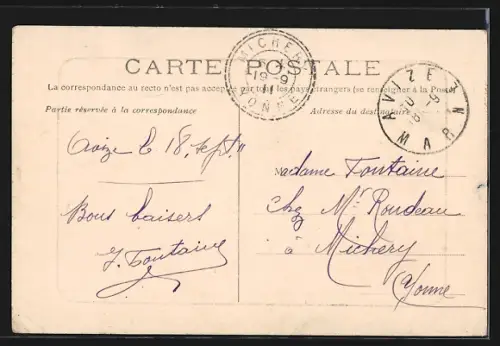 CARTE POSTALE
La correspondance au recto n'est pas acceptée par tous les pays étrangers (se renseigner à la Poste)
Partie réservée à la correspondance
Adresse du destinataire
MICHERY
19-9
11
YONNE
AVIZE
MARNE
Avize le 18 sept. 11
Bons baisers
J. Fontaine
Madame Fontaine
chez Mr Rondeau
à Michery
Yonne